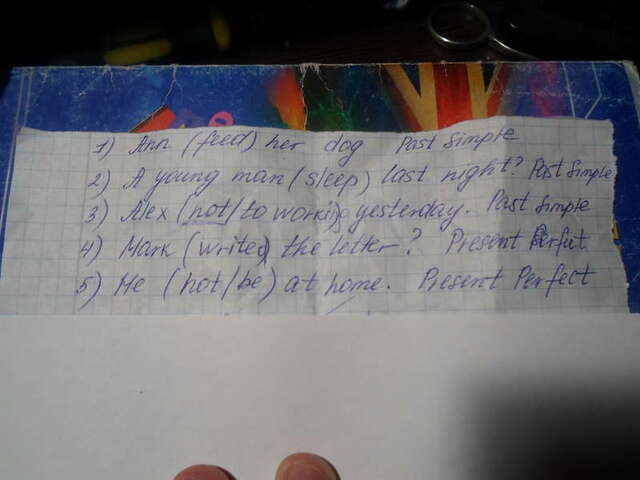 1) Ann (feed) her dog Past Simple
2) A young man (sleep) last night? Past Simple
3) Alex (not/to work) yesterday. Past Simple
4) Mark (write) the letter? Present Perfect
5) He (not/be) at home. Present Perfect